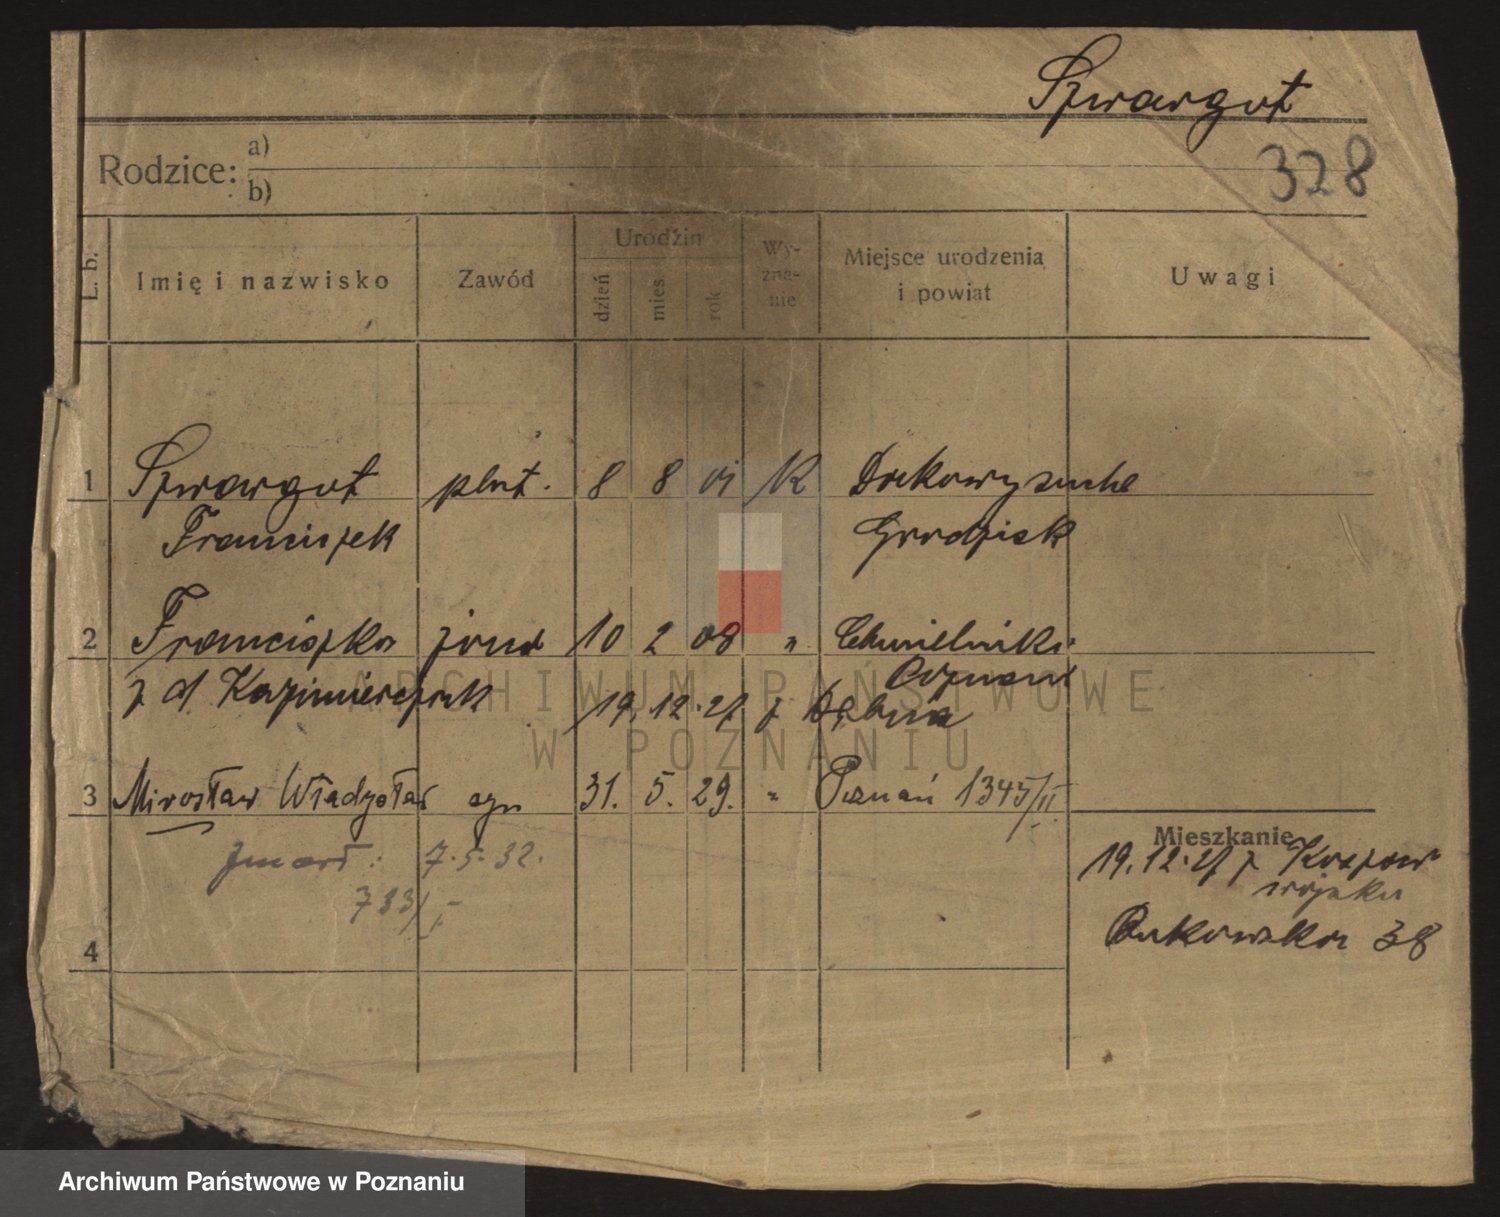 Szwargot
328
Rodzice: a)
b)
L. b.
Imię i nazwisko
Zawód
Urodzin
dzień
mies
rok
Wy-
zna-
nie
Miejsce urodzenia
i powiat
Uwagi
1 Szwargot plut. 8 8 01 K Dakowy suche
Franciszek Grodzisk
2 Franciszka żona 10 2 08 " Chmielniki
Poznań
z d Kazimierczak
19.12.27 z Dębna
3 Mirosław Władysław syn 31. 5. 29. " Poznań 1345/II
zmarł: 7.5.32.
733/I
4
Mieszkanie
19.12.27 z Koszar
wojsku
Bukowska 38
ARCHIWUM PAŃSTWOWE
W POZNANIU
Archiwum Państwowe w Poznaniu